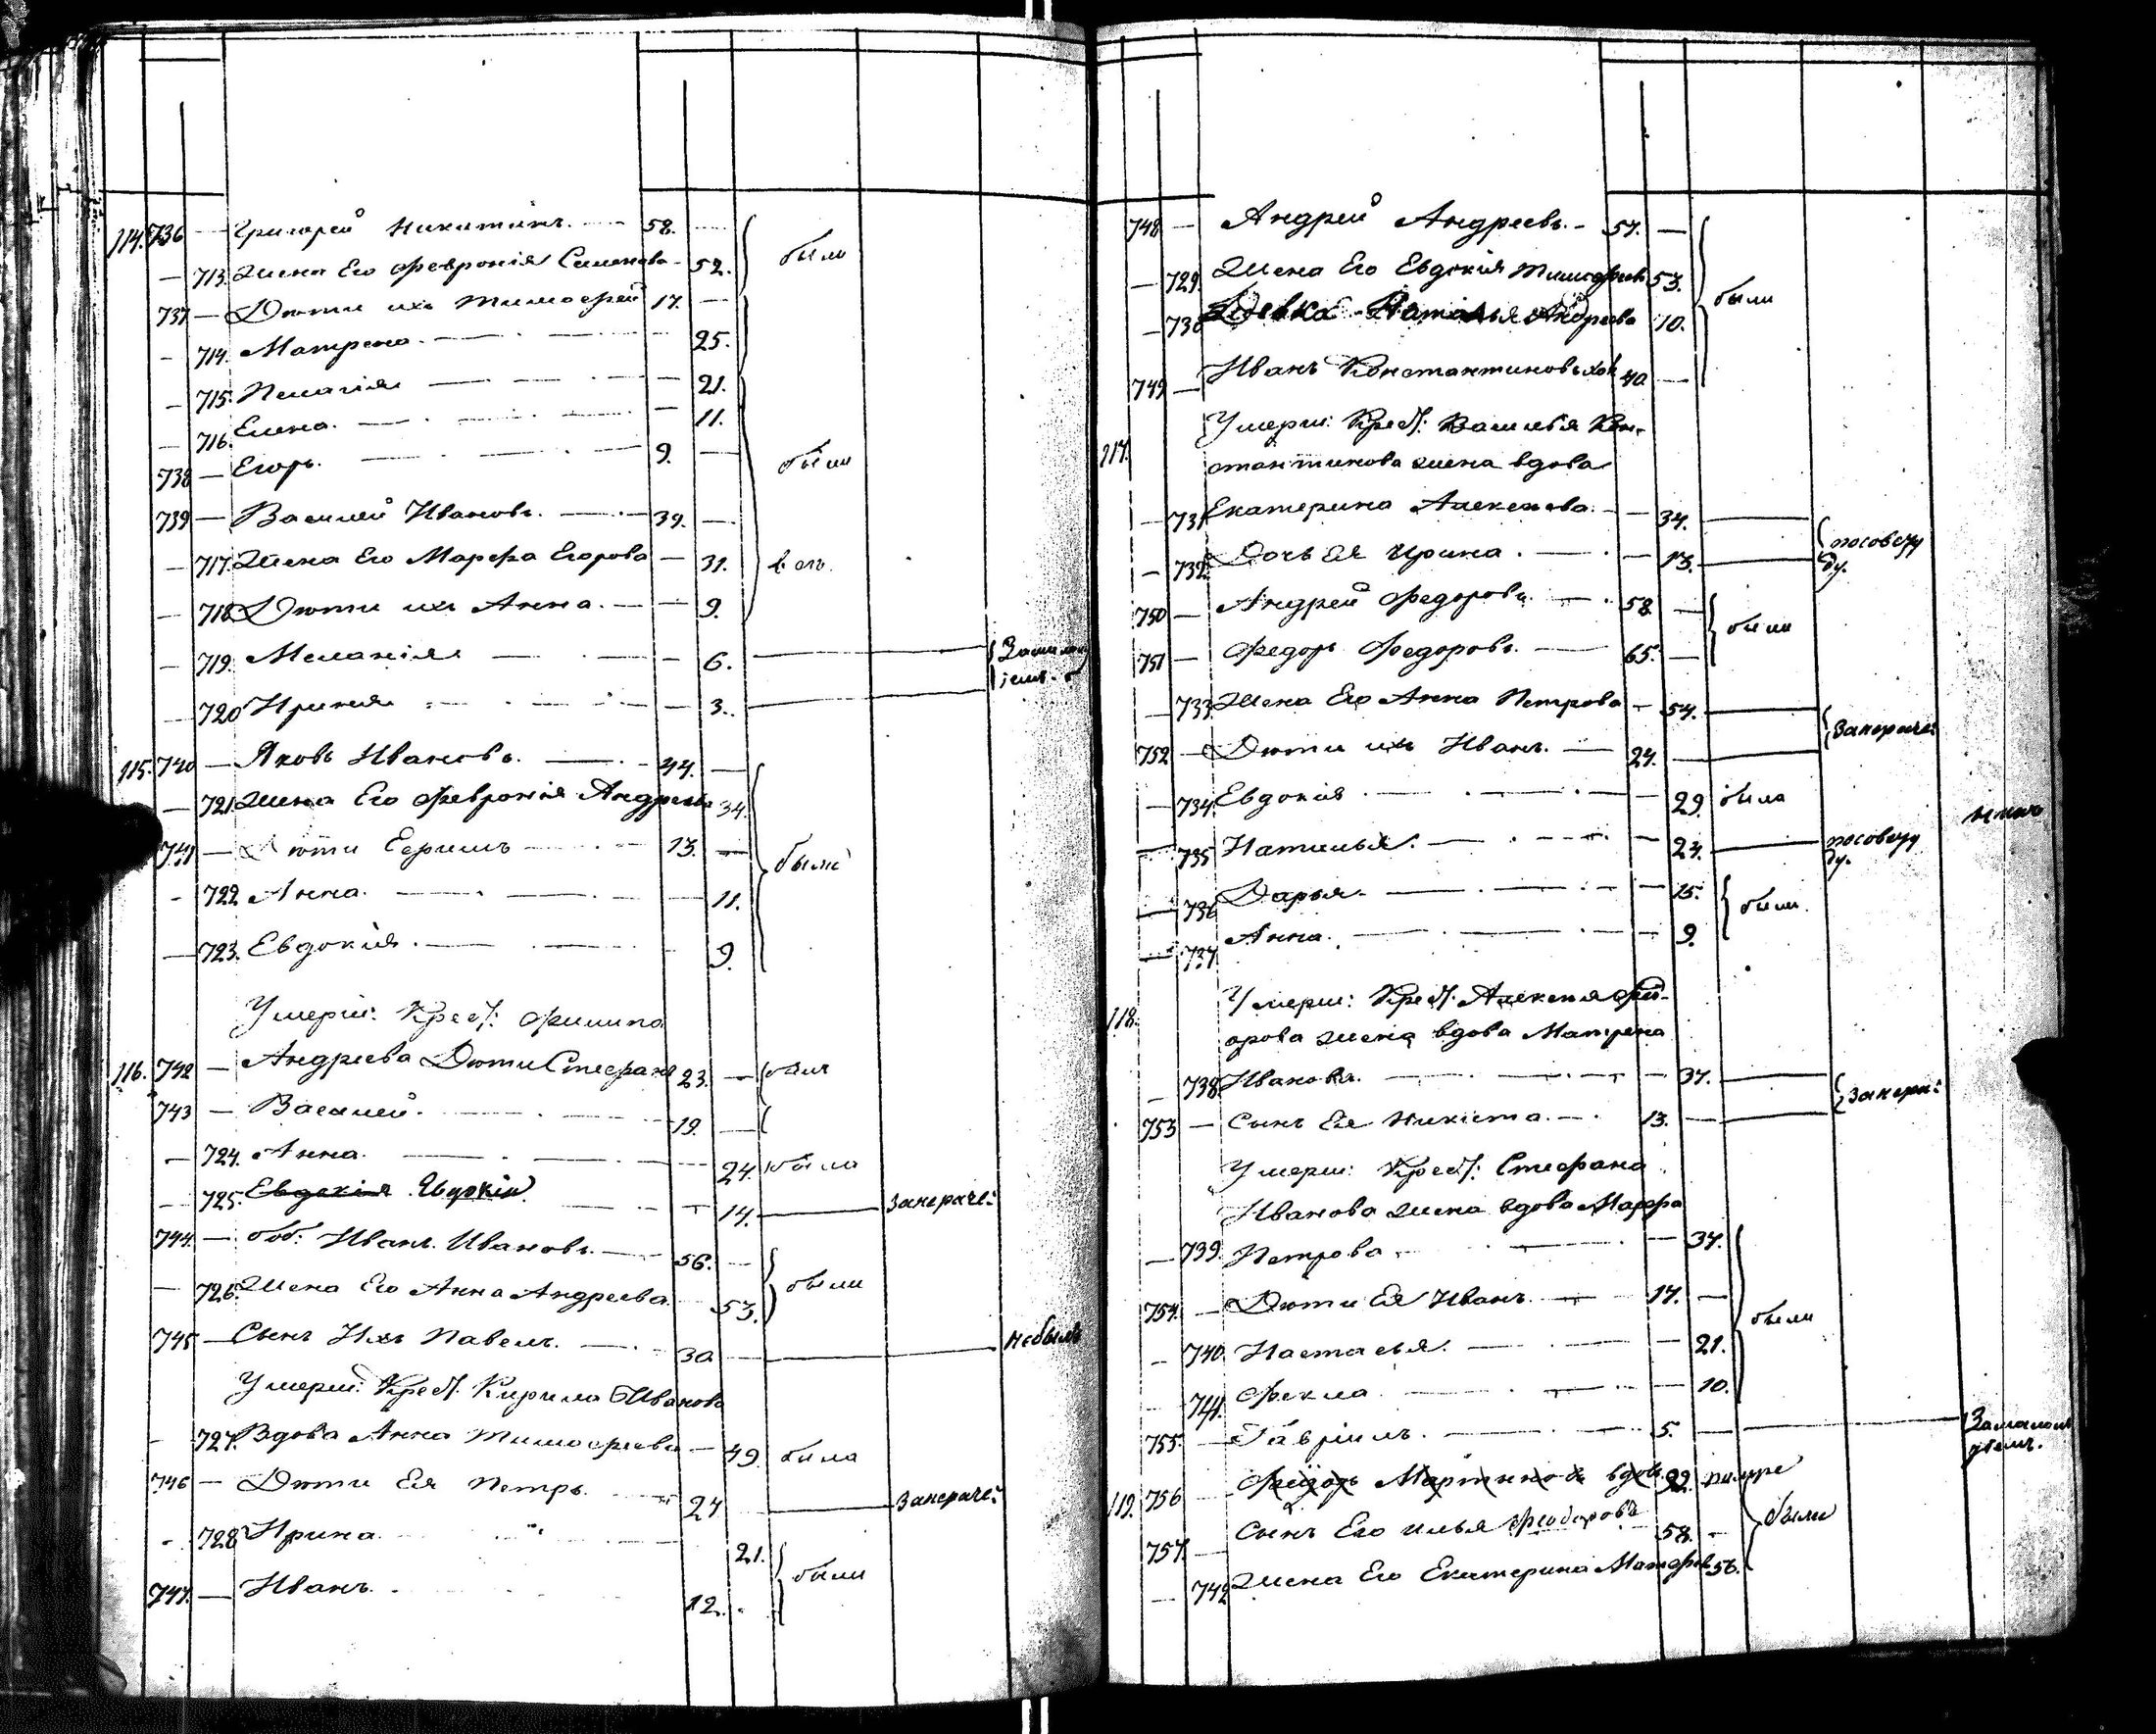 114. 736 — Григорей Никитинъ. — 58. —
— 713. Жена Его Феврониѣ Семенова — 52. были
737 — Дѣти ихъ Тимофей 17. —
— 714. Матрена. — 25.
— 715. Пелагія — 21.
— 716. Елена. — 11.
738 — Егоръ. — 9. — были
739 — Василей Ивановъ. — 39. —
— 717. Жена Его Марфа Егорова — 31.
— 718. Дѣти ихъ Анна. — 9.
— 719. Меланія — 6. —
— 720. Ирина — 3. —
115. 740 — Яковъ Ивановъ. — 44. —
— 721. Жена Его Февронія Андреева 34.
741 — Дѣти Ефимъ — 13. — были
— 722. Анна. — 11.
— 723. Евдокія. — 9.
Умерш: Крест: Филипа
116. 742 — Андреева Дѣти Стефанъ 23. — были
743 — Василей. — 19. —
— 724. Анна. — 24. была
— 725. Евдокія Евдокія — 14. — Занераче:
744. — боб: Иванъ Ивановъ. — 56. —
— 726. Жена Его Анна Андреева. 53. были
745 — Сынъ Ихъ Павелъ. — 30 — небылъ
Умерш: Крест: Кирила Иванова
— 727. Вдова Анна Тимофеева — 49. была
746 — Дѣти Ея Петръ. 24 — Занераче:
— 728. Ирина. 21.
747. — Иванъ. 12. были
748 — Андрей Андреевъ. — 57. —
— 729. Жена Его Евдокія Тимофеев 53.
— 730 Девка Наталья Андреева 10. были
749 — Иванъ Константиновъ хол 40 —
Умерш: Крест: Василья Кон-
117. стантинова жена вдова
— 731. Екатерина Алексеева. — 34. —
— 732. Дочь Ея Ирина. — 13. —
750 — Андрей Федоровъ. — 58 —
751 — Федоръ Федоровъ. — 65. — были
— 733. Жена Его Анна Петрова — 54. —
752 — Дѣти ихъ Иванъ. — 24. — Занераче:
— 734. Евдокія — 29. была
— 735 Наталья. — 24. —
— 736 Дарья. — 15.
— 737 Анна. — 9. были.
118. Умерш: Крест: Алексея Фед-
орова жена вдова Матрена
— 738. Иванова. — 37. —
753 — Сынъ Ея Никита. — 13. — Занера:
Умерш: Крест: Стефана
Иванова жена вдова Марфа
— 739. Петрова. — 37.
754. — Дѣти Ея Иванъ. — 17. —
— 740. Настасья. — 21. были
— 741. Фекла. — 10.
755. — Гаврилъ. — 5. —
119. 756 — Федоръ Мартиновъ вдов. 92.
757. — Сынъ Его Илья Феодоровъ 58. — были
— 742 Жена Его Екатерина Матфеев 56.